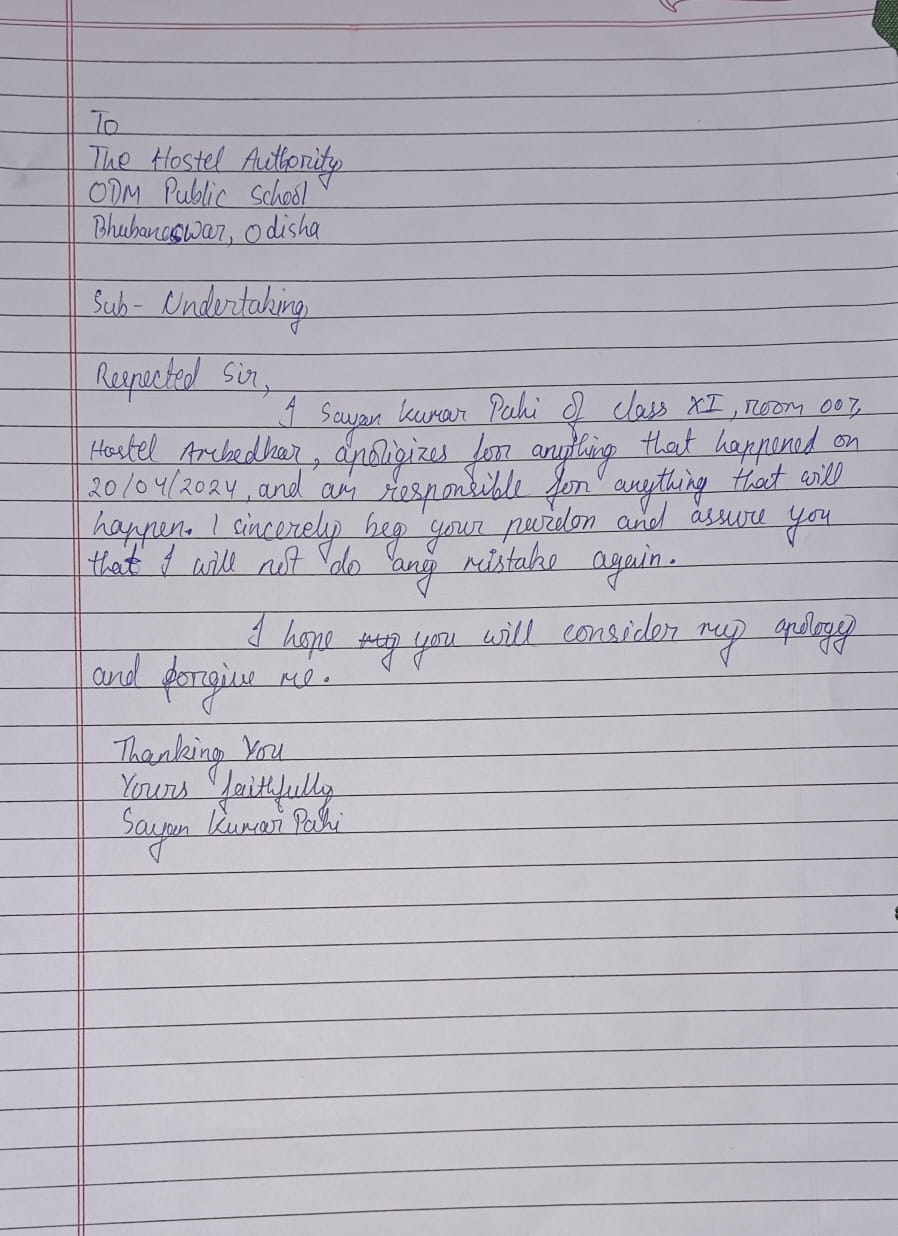 To
The Hostel Authority
ODM Public School
Bhubaneswar, Odisha
Sub- Undertaking
Respected Sir,
I Sayan Kumar Pahi of class XI, room 007,
Hostel Arkedhar, apoligizes for anything that happened on
20/04/2024, and am responsible for anything that will
happen. I sincerely beg your pardon and assure you
that I will not do any mistake again.
I hope you will consider my apology
and forgive me.
Thanking You
Yours faithfully
Sayan Kumar Pahi